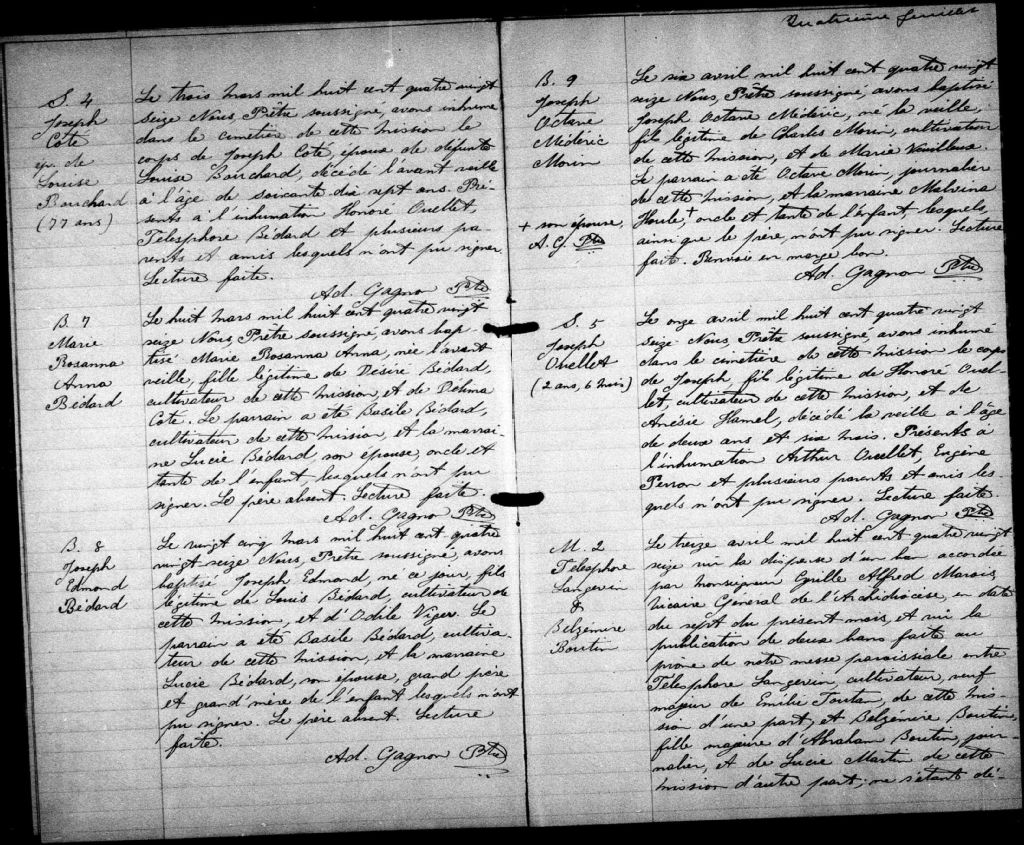 Quatrième feuillet
S. 4
Joseph
Coté
ép. de
Louise
Bouchard
(77 ans)
Le trois mars mil huit cent quatre vingt
seize Nous, Prêtre soussigné, avons inhumé
dans le cimetière de cette mission le
corps de Joseph Coté, époux de défunte
Louise Bouchard, décédé l'avant veille
à l'âge de soixante dix sept ans. Pré-
sents à l'inhumation Honoré Ouellet,
Telesphore Bédard et plusieurs pa-
rents et amis lesquels n'ont pu signer.
Lecture faite.
Ad. Gagnon Ptre
B. 7
Marie
Rosanna
Anna
Bédard
Le huit mars mil huit cent quatre vingt
seize Nous, Prêtre soussigné, avons bap-
tisé Marie Rosanna Anna, née l'avant
veille, fille légitime de Désiré Bédard,
cultivateur de cette mission, et de Délima
Coté. Le parrain a été Basile Bédard,
cultivateur de cette mission, et la marrai-
ne Lucie Bédard, son épouse, oncle et
tante de l'enfant, lesquels n'ont pu
signer. Le père absent. Lecture faite.
Ad. Gagnon Ptre
B. 8
Joseph
Edmond
Bédard
Le vingt cinq mars mil huit cent quatre
vingt seize Nous, Prêtre soussigné, avons
baptisé Joseph Edmond, né ce jour, fils
légitime de Louis Bédard, cultivateur de
cette mission, et d'Odile Viger. Le
parrain a été Basile Bédard, cultiva-
teur de cette mission, et la marraine
Lucie Bédard, son épouse, grand père
et grand'mère de l'enfant lesquels n'ont
pu signer. Le père absent. Lecture
faite.
Ad. Gagnon Ptre
B. 9
Joseph
Octave
Médéric
Morin
+ son épouse,
A. G. Ptre
Le six avril mil huit cent quatre vingt
seize Nous, Prêtre soussigné, avons baptisé
Joseph Octave Médéric, né la veille,
fils légitime de Charles Morin, cultivateur
de cette mission, et de Marie Veuilleux.
Le parrain a été Octave Morin, journalier
de cette mission, et la marraine Malvina
Houle,+ oncle et tante de l'enfant, lesquels
ainsi que le père, n'ont pu signer. Lecture
fait. Renvoi en marge bon.
Ad. Gagnon Ptre
S. 5
Joseph
Ouellet
(2 ans, 6 mois)
Le onze avril mil huit cent quatre vingt
seize Nous, Prêtre soussigné, avons inhumé
dans le cimetière de cette mission le corps
de Joseph, fils légitime de Honoré Ouel-
let, cultivateur de cette mission, et de
Anésie Hamel, décédé la veille à l'âge
de deux ans et six mois. Présents à
l'inhumation Arthur Ouellet, Eugène
Perron et plusieurs parents et amis les-
quels n'ont pu signer. Lecture faite.
Ad. Gagnon Ptre
M. 2
Telesphore
Langevin
&
Belzémire
Boutin
Le treize avril mil huit cent quatre vingt
seize vu la dispense d'un ban accordée
par Monseigneur Cyrille Alfred Marois,
Vicaire Général de l'Archidiocèse, en date
du sept du présent mois, et vu la
publication de deux bans faite au
prone de notre messe paroissiale entre
Télesphore Langevin, cultivateur, veuf
majeur de Emilie Toutan, de cette mis-
sion d'une part, et Belzémire Boutin,
fille majeure d'Abraham Boutin, jour-
nalier, et de Lucie Martin de cette
mission d'autre part; ne s'étant dé-